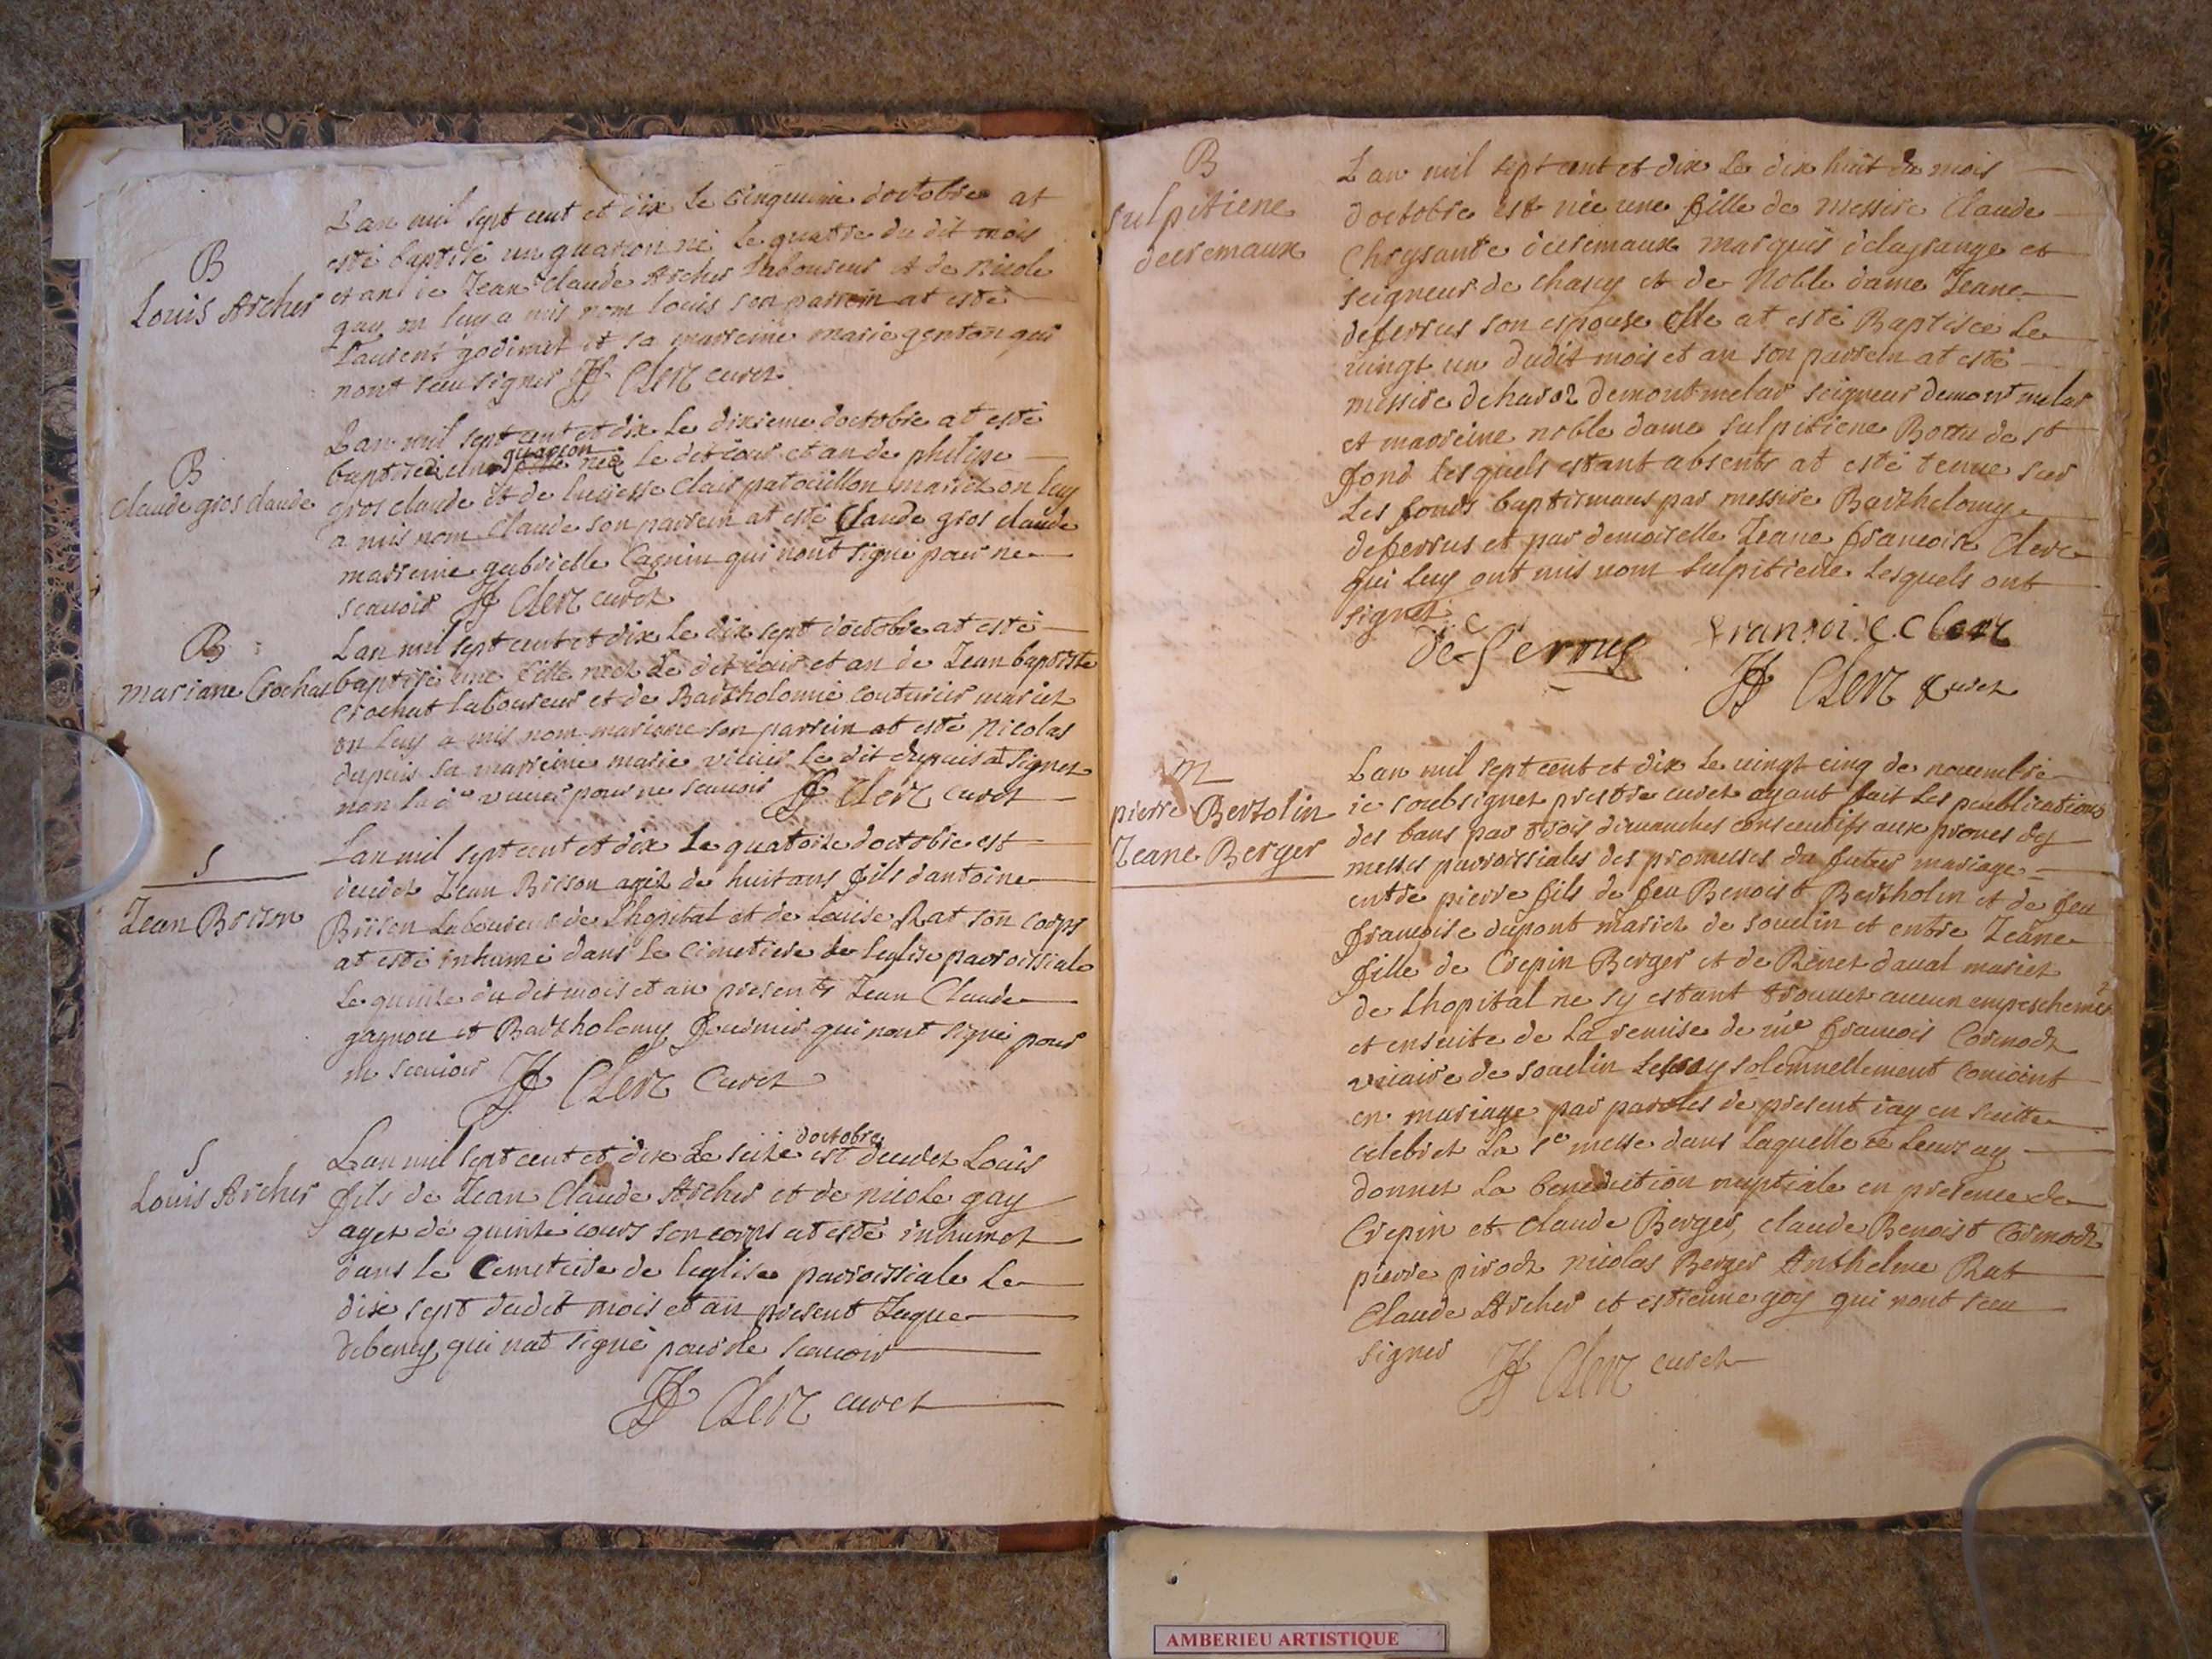 B
Louis Archer
Lan mil sept cent et dix le cinquieme doctobre at
esté baptisé un guarcon né le quatre du dit mois
et an de Jean Claude Archer laboureur et de nicole
gay on luy a mis nom louis son parrein at esté
Laurent godimet et sa marreine marie genton qui
nont sceu signer JJ Clerc curez
B
Claude gros claude
Lan mil sept cent et dix le dixieme doctobre at esté
baptisé un guarcon né le dit iour et an de philipe
gros claude et de lucresse Clair patouillon mariez on luy
a mis nom Claude son parrein at esté Claude gros claude
marreine gabrielle Cagnin qui nont signé pour ne
scauoir JJ Clerc curez
B
mariane Crochat
Lan mil sept cent et dix le dix sept doctobre at esté
baptisé une fille neé le dit iour et an de Jean baptiste
Crochat laboureur et de Bartholomie couturier mariez
on luy a mis nom mariane son parrein at esté Nicolas
dupuis sa marreine marie le dit dupuis at signez
non la de pour ne scauoir JJ Clerc curez
S
Jean Brison
Lan mil sept cent et dix le quatorze doctobre est
decedez Jean Brison agez de huit ans fils dantoine
Brison Laboureur de Lhopital et de Louise Rat son corps
at esté inhumé dans le Cimetiere de leglise parroissiale
le quinze du dit mois et an presents Jean Claude
gagnou et Bartholomy qui nont signé pour
ne scauoir JJ Clerc Curez
S
Louis Archer
doctobre
Lan mil sept cent et dix Le seize est decedez Louis
fils de Jean Claude Archer et de nicole gay
agez de quinze iours son corps at esté inhumez
dans le Cemetiere de leglise parroissiale Le
dix sept dudit mois et an present Jaque
debeney qui nat signé pour ne scauoir
JJ Clerc curez
B
Sulpitiene
decremaux
Lan mil sept cent et dix Le dix huit du mois
doctobre est née une fille de messire Claude
Chrysante decremaux marquis delagrange et
seigneur de chasey et de Noble dame Jeane
deferrus son espouse elle at esté Baptisee Le
vingt un dudit mois et an son parrein at esté
messire demontmelas seigneur demontmelas
et marreine noble dame Sulpitiene Bottu de st
fond lesquels estant absents at esté tenue sur
Les fonds baptismaux par messire Barthelomy
deferrus et par demoiselle Jeane francoise Clerc
qui luy ont mis nom Sulpitiene Lesquels ont
signez
de ferrus fransoise Clerc
JJ Clerc Curez
M
pierre Bertolin
Jeane Berger
Lan mil sept cent et dix Le vingt cinq de nouembre
ie soubsignez prestre curez ayant fait les publications
des bans par trois dimanches consecutifs aux prones des
messes parroissiales des promesses du futur mariage
entre pierre fils de feu Benoist Bertholin et de feu
francoise dupont mariez de souclin et entre Jeane
fille de Crepin Berger et de Renez daual mariez
de Lhopital ne sy estant trouuez aucun empeschemet
et ensuite de La remise de me francois Cormodz
vicaire de souclin Lesay solemnellement conioint
en mariage par paroles de present iay en suitte
celebrez La ste messe dans Laquelle ie leurs ay
donnez La benediction nuptiale en presence de
Crepin et claude Berger, claude Benoist Cormodz
pierre pirodz nicolas Berger Anthelme Rat
Claude Archer et estienne goy qui nont sceu
signer JJ Clerc curez
AMBERIEU ARTISTIQUE